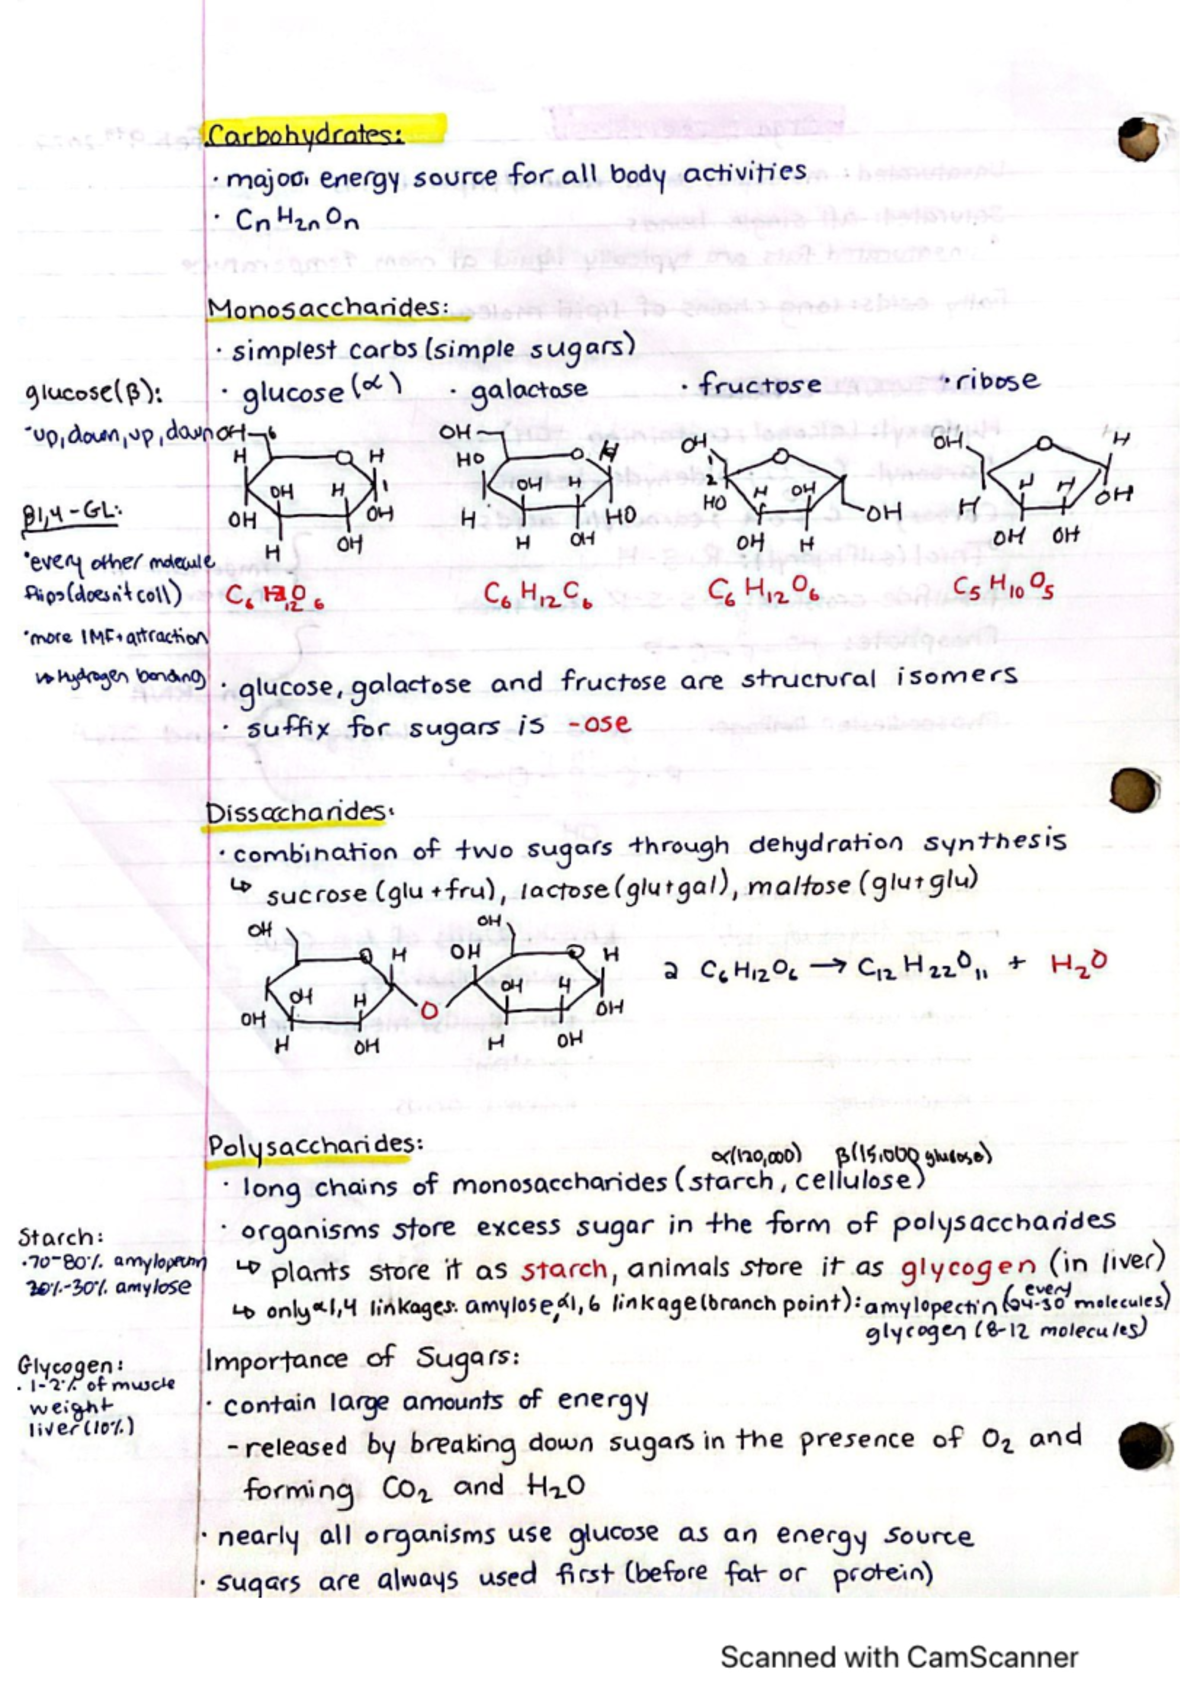 Carbohydrates:
· major energy source for all body activities
· CnH2nOn
Monosaccharides:
· simplest carbs (simple sugars)
glucose(β):
· glucose (α) · galactose · fructose · ribose
·up, down, up, down
OH 6 H H OH H OH OH H OH
OH HO H OH H H HO H OH
OH 1 2 HO H OH OH OH H
OH H H H H OH OH OH
β1,4-GL:
·every other molecule
flips (doesn't coil)
C6 H12 O6 C6 H12 C6 C6 H12 O6 C5 H10 O5
·more IMF + attraction
↳ Hydrogen bonding
· glucose, galactose and fructose are structural isomers
· suffix for sugars is -ose
Dissaccharides:
· combination of two sugars through dehydration synthesis
↳ sucrose (glu + fru), lactose (glu+gal), maltose (glu+glu)
OH O H OH H OH H OH
O
OH OH O H OH H OH H OH
2 C6H12O6 → C12 H22O11 + H2O
Polysaccharides:
α(120,000) β(15,000 glucose)
· long chains of monosaccharides (starch, cellulose)
· organisms store excess sugar in the form of polysaccharides
Starch:
·70-80% amylopectin
20%-30% amylose
↳ plants store it as starch, animals store it as glycogen (in liver)
↳ only α1,4 linkages: amylose, α1,6 linkage (branch point): amylopectin (every 24-30 molecules)
glycogen (8-12 molecules)
Glycogen:
· 1-2% of muscle
weight
liver (10%)
Importance of Sugars:
· contain large amounts of energy
- released by breaking down sugars in the presence of O2 and
forming CO2 and H2O
· nearly all organisms use glucose as an energy source
· sugars are always used first (before fat or protein)
Scanned with CamScanner